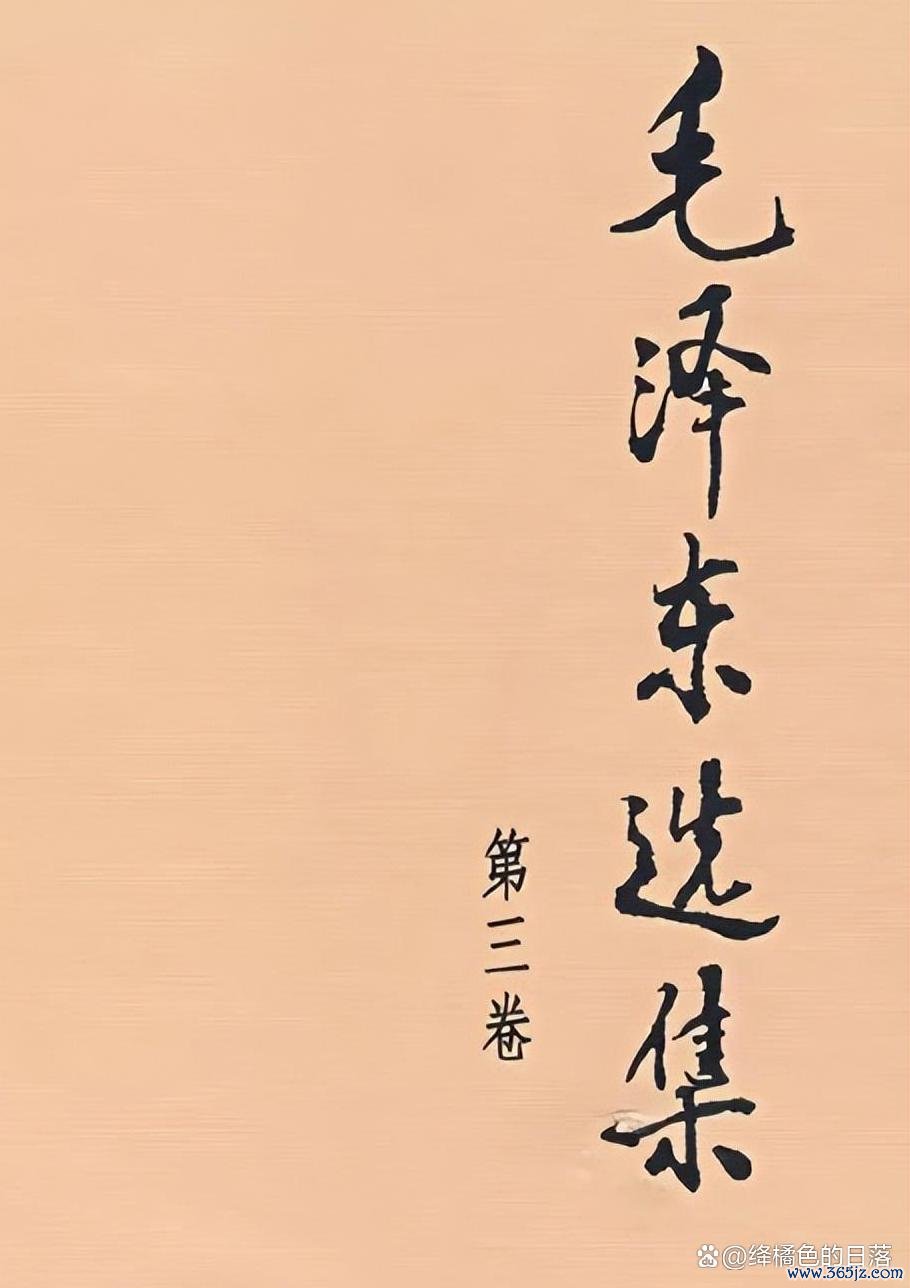 毛泽东选集
第三卷
@绛橘色的日落
www.365jz.com